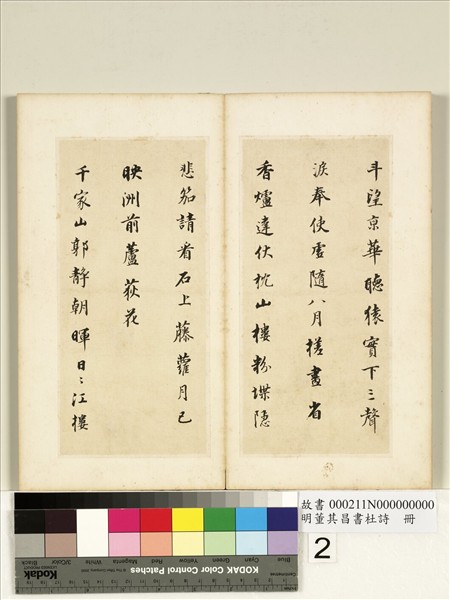 斗望京華聽猿實下三聲
淚奉使虛隨八月槎畫省
香爐違伏枕山樓粉堞隱
悲笳請看石上藤蘿月已
映洲前蘆荻花
千家山郭靜朝暉日〻江樓
故書 000211N000000000
明董其昌書杜詩 冊
2
Blue Cyan Green Yellow Red Magenta White 3/Color Black
KODAK Color Control Patches
Kodak